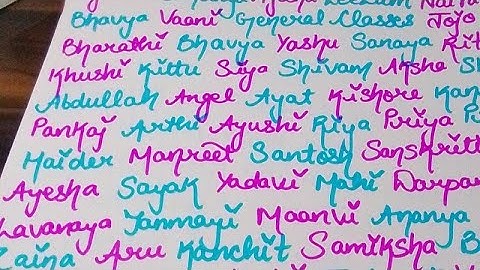 Bhavya Vaani General Classes Jojo
Bharathi Bhavya Yashu Sanaya
Khushi Kittu Siya Shivam Aksha
Abdullah Angel Ayat Kishore
Pankaj Arthi Ayushi Riya Priya
Haider Manreet Santosh
Ayesha Sayak Yadavi Mahi
Lavanaya Tanmayi Maanvi Ananya
Zaina Aru Kanchit Samiksha